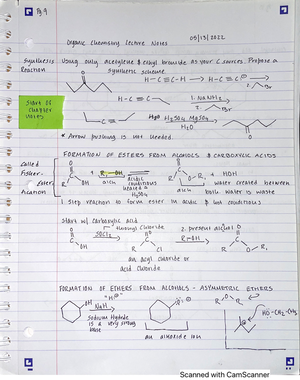 Pg. 9
05/13/2022
Organic Chemistry Lecture Notes
Synthesis Reaction
Using only acetylene & ethyl bromide as your C sources. Propose a
synthetic scheme.
H-C≡C-H → H-C≡C⊖ →
Br
H-C≡C
1. NaNH₂
2. Br
Start of Chapter
H₂SO₄
H₂O
O
* Arrow pushing is not needed.
FORMATION OF ESTERS FROM ALCOHOLS & CARBOXYLIC ACIDS
called
Fischer-
Ester-
ification
O
OH
+ R₁-OH
acidic
conditions
H₂SO₄
O
O-R₁
+ HOH
water created between
both. water is waste
1 Step reaction to form ester in acidic & hot conditions
Start w/ carboxylic acid
Thionyl Chloride
SOCl₂
2. present alcohol
O
OH
O
Cl
O
O-R₁
An acyl chloride or
acid chloride
FORMATION OF ETHERS FROM ALCOHOLS - ASYMMETRIC ETHERS
OH
NaH
Sodium Hydride
is a very strong
base
An alkoxide ion
R-O-R₁
Scanned with CamScanner